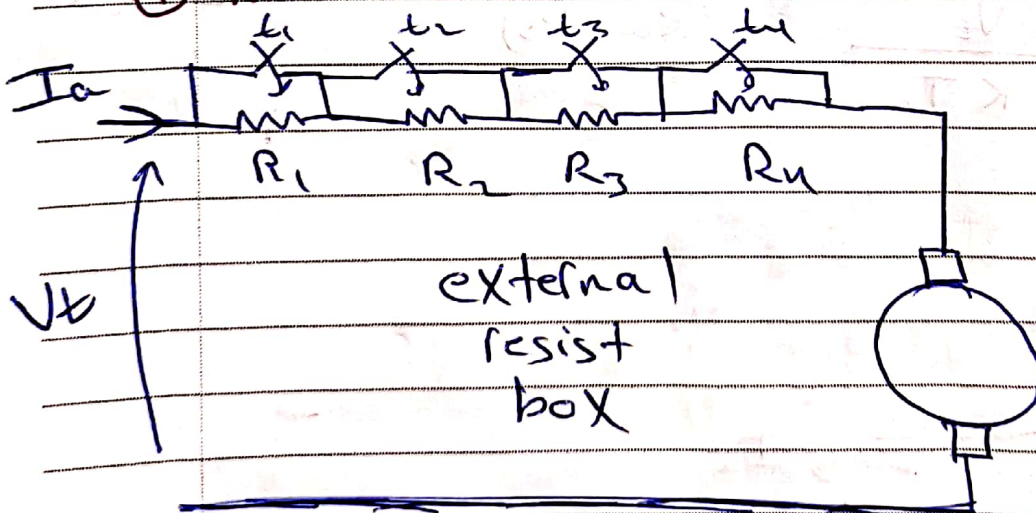 t1 t2 t3 t4
Ia
R1 R2 R3 R4
Vt
external
resist
box